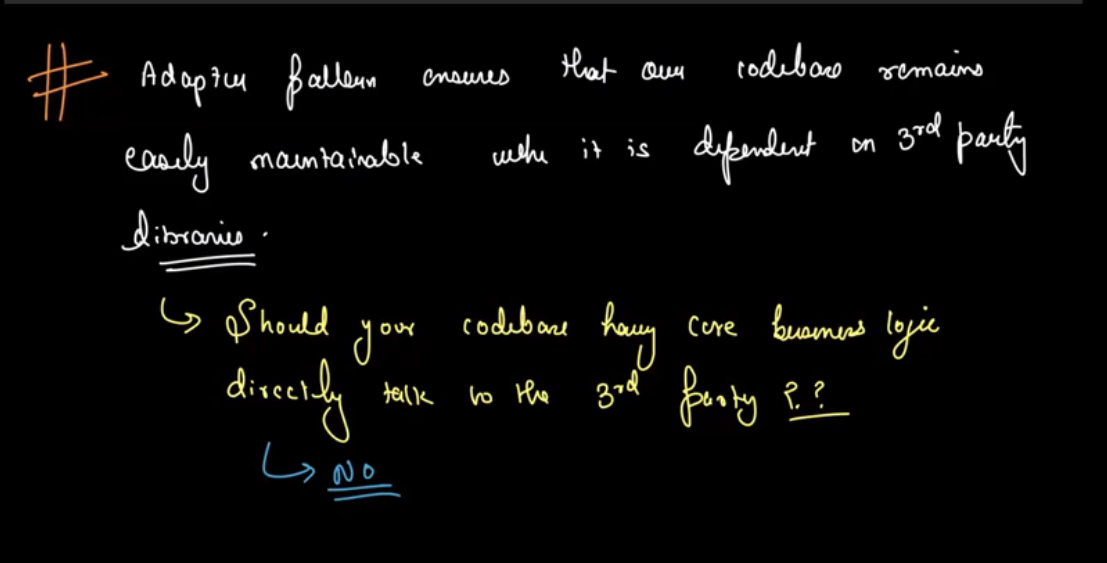 # Adapter pattern ensures that our codebase remains
easily maintainable when it is dependent on 3rd party
libraries.
↳ Should your codebase having core business logic
directly talk to the 3rd party ??
↳ NO